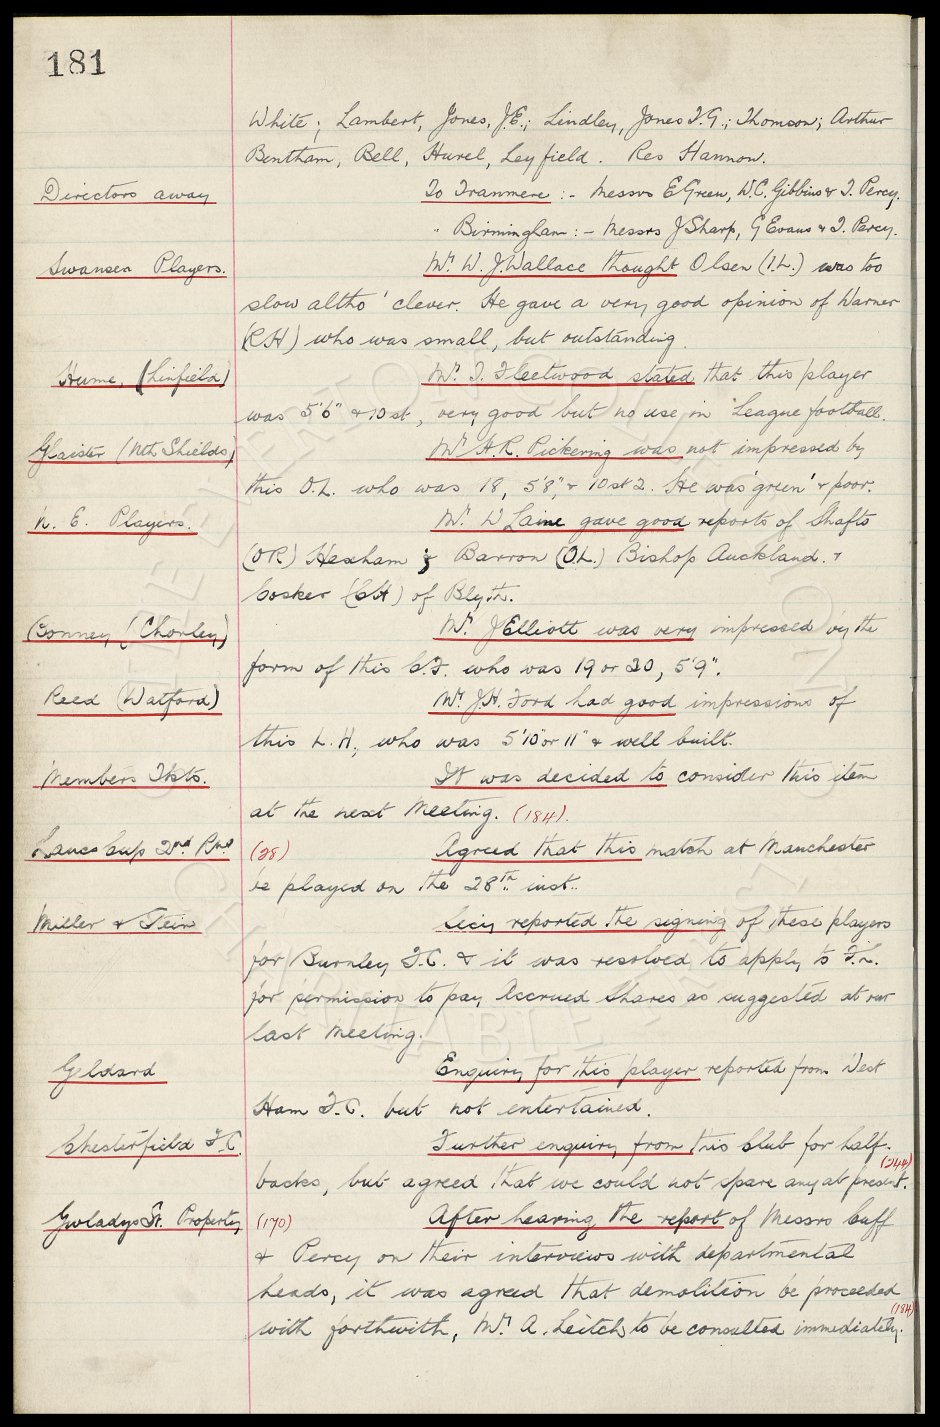 181
White; Lambert, Jones, J.E.; Lindley, Jones T.G.; Thomson; Arthur
Bentham, Bell, Hurel, Leyfield. Res Hannon.
Directors away To Tranmere :- Messrs E Green, W.C. Gibbins & T. Percy.
" Birmingham :- Messrs J Sharp, G Evans & T. Percy.
Swansea Players. Mr. W. J. Wallace thought Olsen (I.L.) was too
slow altho' clever. He gave a very good opinion of Warner
(RH) who was small, but outstanding.
Hume, (Linfield) Mr. T. Fleetwood stated that this player
was 5'6" & 10st, very good but no use in League football.
Glaister (Nth Shields) Mr H.R. Pickering was not impressed by
this O.L. who was 18, 5'8", & 10st 2. He was 'green' & poor.
N. E. Players. Mr. W Laine gave good reports of Shafto
(OR) Hexham & Barron (O.L.) Bishop Auckland. &
Cosker (CH) of Blyth.
Bonney (Chorley) Mr. J Elliott was very impressed by the
form of this C.F. who was 19 or 20, 5'9".
Reed (Watford) Mr. J.H. Ford had good impressions of
this L.H., who was 5'10" or 11" & well built.
Members Tkts. It was decided to consider this item
at the next Meeting. (184).
Lancs Cup 2nd Rnd (28) Agreed that this match at Manchester
be played on the 28th. inst..
Miller & Stein Secy reported the signing of these players
for Burnley F.C. & it was resolved to apply to F.L.
for permission to pay Accrued Shares as suggested at our
last Meeting.
Geldard Enquiry for this player reported from West
Ham F.C. but not entertained.
Chesterfield F.C. Further enquiry from this Club for half-
backs, but agreed that we could not spare any at present. (244)
Gwladys St. Property (170) After hearing the report of Messrs Cuff
& Percy on their interviews with departmental
heads, it was agreed that demolition be proceeded
with forthwith, Mr. A. Leitch to be consulted immediately. (184)